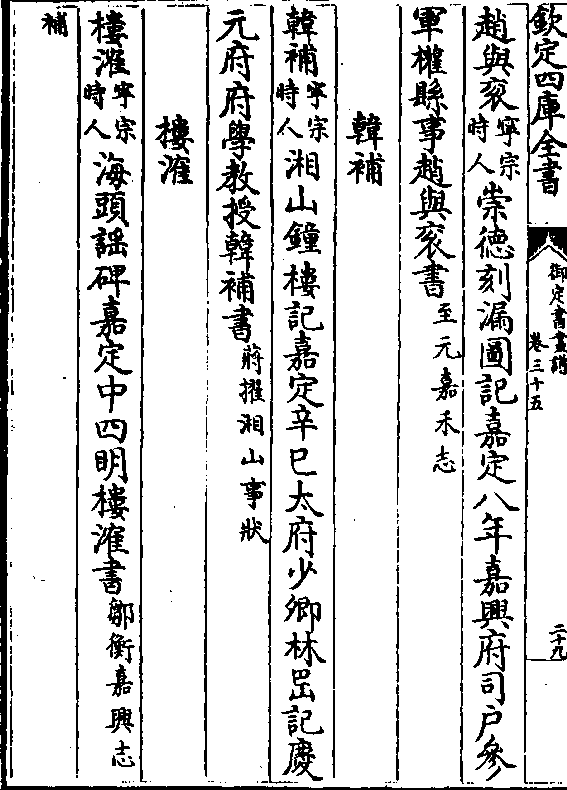 欽定四庫全書
御定書畫譜
卷三十五
二十九
趙與𧙗寧宗時人崇德刻漏圖記嘉定八年嘉興府司戶參
軍權縣事趙與𧙗書至元嘉禾志
韓補
韓補寧宗時人湘山鐘樓記嘉定辛巳太府少卿林岊記慶
元府府學教授韓補書蔣擢湘山事狀
樓漼
樓漼寧宗時人海頭謡碑嘉定中四明樓漼書鄒衡嘉興志
補